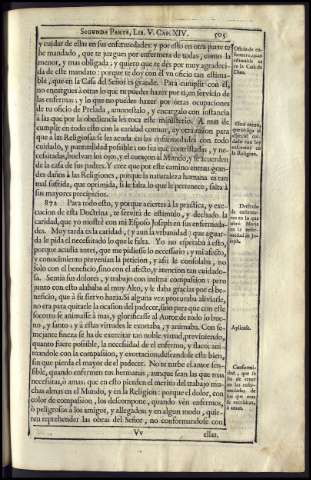 SEGUNDA PARTE, LIB. V. CAP. XIV. 505
y cuidar de ellas en sus enfermedades: y por esto en otra parte te
he mandado, que te juzgues por enfermera de todas, como la
menor, y mas obligada, y quiero que te dés por muy agradeci-
da de este mandato: porque te doy con él vn oficio tan estima-
ble, que en la Casa del Señor es grande. Para cumplir con él,
no encargues à otras lo que tu puedes hazer por ti, en servicio de
las enfermas: y lo que no puedes hazer por otras ocupaciones
de tu oficio de Prelada, amonestalo, y encargalo con instancia
à las que por la obediencia les toca este ministerio. A mas de
cumplir en todo esto con la caridad comun, ay otra razon para
que à las Religiosas se les acuda en sus enfermedades con todo
cuidado, y puntualidad possible: no sea que contristadas, y ne-
cessitadas, buelvan los ojos, y el coraçon al Mundo, y se acuerden
de la casa de sus padres. Y cree que por este camino entran gran-
des daños à las Religiones, porque la naturaleza humana es tan
mal sufrida, que oprimida, si le falta lo que le pertenece, salta à
sus mayores precipicios.
872 Para todo esto, y porque aciertes à la practica, y exe-
cucion de esta Doctrina, te servirà de estimulo, y dechado la
caridad, que yo mostrè con mi Esposo Joseph en sus enfermeda-
des. Muy tarda es la caridad, (y aun la vrbanidad) que aguar-
da le pida el necessitado lo que le falta. Yo no esperaba à esto,
porque acudia antes, que me pidiesse lo necessario; y mi afecto,
y conocimiento prevenian la peticion, y assi le consolaba, no
solo con el beneficio, sino con el afecto, y atencion tan cuidado-
sa. Sentia sus dolores, y trabajos con intima compassion: pero
junto con esto alababa al muy Alto, y le daba gracias por el be-
neficio, que à su siervo hazia. Si alguna vez procuraba aliviarle,
no era para quitarle la ocasion del padecer, sino para que con este
socorro se animasse à mas, y glorificasse al Autor de todo lo bue-
no, y santo: y à estas virtudes le exortaba, y animaba. Con se-
mejante fineza se ha de exercitar tan noble virtud, previniendo,
quanto fuere possible, la necessidad de el enfermo, y flaco: ani-
mandole con la compassion, y exortacion, deseandole este bien,
sin que pierda el mayor de el padecer. No te turbe el amor sen-
sible, quando enfermen tus hermanas, aunque sean las que mas
necessitas, ò amas: que en esto pierden el merito del trabajo mu-
chas almas en el Mundo, y en la Religion: porque el dolor, con
color de compassion, los descompone, quando vèn enfermos,
ò peligrosos à los amigos, y allegados: y en algun modo, quie-
ren reprehender las obras del Señor, no conformandose con
Vv ellas.